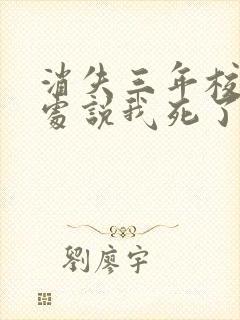 消失三年校
處說我死了
劉廖宇